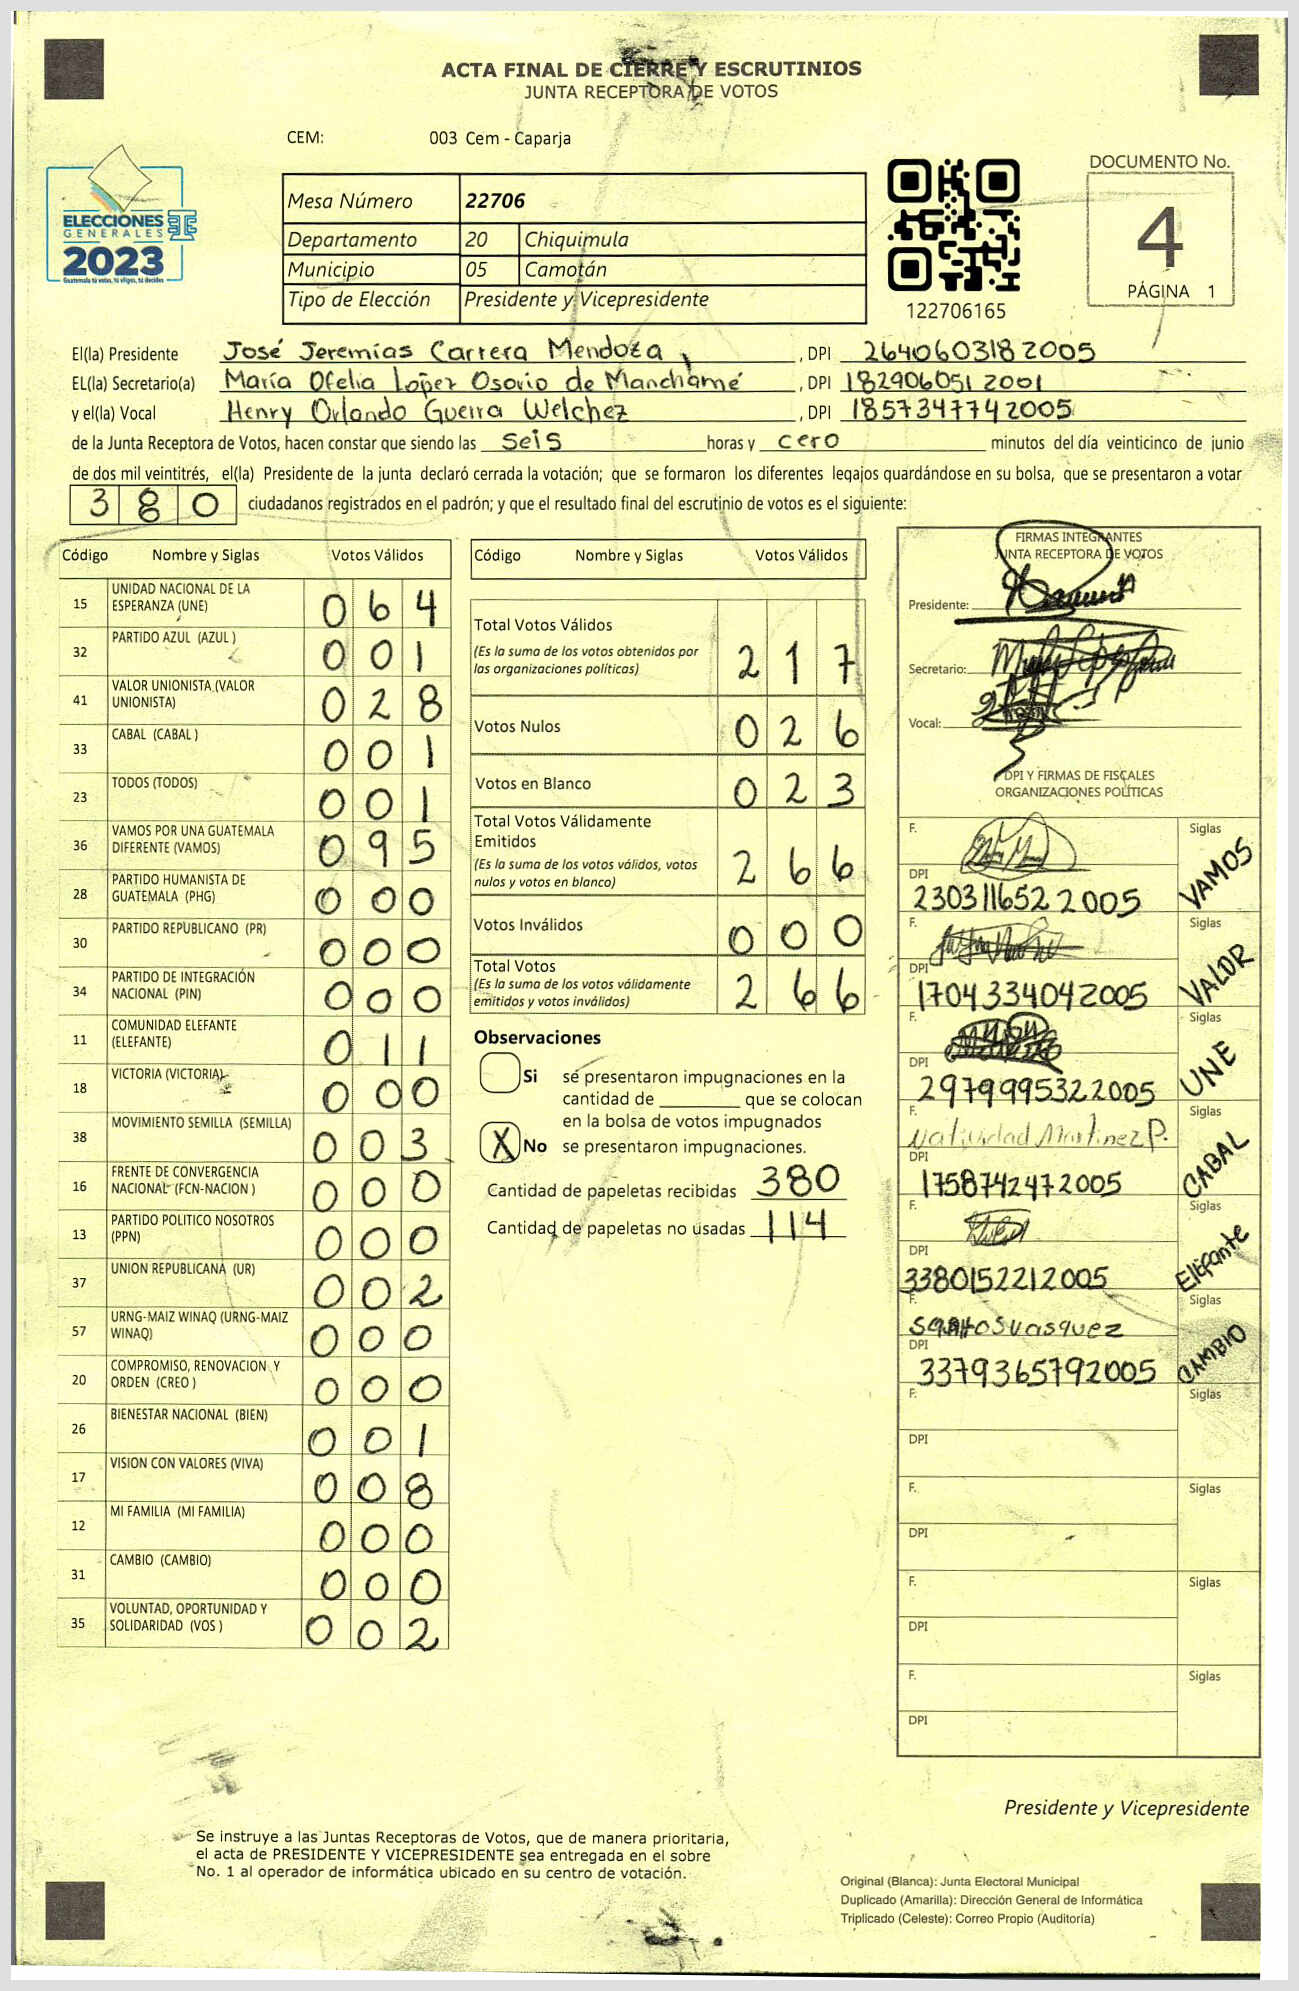 ACTA FINAL DE CIERRE Y ESCRUTINIOS
JUNTA RECEPTORA DE VOTOS
CEM: 003 Cem - Caparja
ELECCIONES
GENERALES
2023
Guatemala tú votas, tú eliges, tú decides
Mesa Número 22706
Departamento 20 Chiquimula
Municipio 05 Camotán
Tipo de Elección Presidente y Vicepresidente
122706165
DOCUMENTO No.
4
PÁGINA 1
El(la) Presidente José Jeremías Carrera Mendoza, DPI 2640603182005
EL(la) Secretario(a) María Ofelia López Osorio de Manchamé, DPI 182906051 2001
y el(la) Vocal Henry Orlando Guerra Welchez, DPI 1857347742005
de la Junta Receptora de Votos, hacen constar que siendo las seis horas y cero minutos del día veinticinco de junio
de dos mil veintitrés, el(la) Presidente de la junta declaró cerrada la votación; que se formaron los diferentes legajos guardándose en su bolsa, que se presentaron a votar
380 ciudadanos registrados en el padrón; y que el resultado final del escrutinio de votos es el siguiente:
Código Nombre y Siglas Votos Válidos
15 UNIDAD NACIONAL DE LA ESPERANZA (UNE) 064
32 PARTIDO AZUL (AZUL ) 001
41 VALOR UNIONISTA (VALOR UNIONISTA) 028
33 CABAL (CABAL ) 001
23 TODOS (TODOS) 001
36 VAMOS POR UNA GUATEMALA DIFERENTE (VAMOS) 095
28 PARTIDO HUMANISTA DE GUATEMALA (PHG) 000
30 PARTIDO REPUBLICANO (PR) 000
34 PARTIDO DE INTEGRACIÓN NACIONAL (PIN) 000
11 COMUNIDAD ELEFANTE (ELEFANTE) 011
18 VICTORIA (VICTORIA) 000
38 MOVIMIENTO SEMILLA (SEMILLA) 003
16 FRENTE DE CONVERGENCIA NACIONAL (FCN-NACION ) 000
13 PARTIDO POLITICO NOSOTROS (PPN) 000
37 UNION REPUBLICANA (UR) 002
57 URNG-MAIZ WINAQ (URNG-MAIZ WINAQ) 000
20 COMPROMISO, RENOVACION Y ORDEN (CREO ) 000
26 BIENESTAR NACIONAL (BIEN) 001
17 VISION CON VALORES (VIVA) 008
12 MI FAMILIA (MI FAMILIA) 000
31 CAMBIO (CAMBIO) 000
35 VOLUNTAD, OPORTUNIDAD Y SOLIDARIDAD (VOS ) 002
Código Nombre y Siglas Votos Válidos
Total Votos Válidos 217
(Es la suma de los votos obtenidos por
las organizaciones políticas)
Votos Nulos 026
Votos en Blanco 023
Total Votos Válidamente
Emitidos 266
(Es la suma de los votos válidos, votos
nulos y votos en blanco)
Votos Inválidos 000
Total Votos 266
(Es la suma de los votos válidamente
emitidos y votos inválidos)
Observaciones
Si se presentaron impugnaciones en la
cantidad de ________ que se colocan
en la bolsa de votos impugnados
X No se presentaron impugnaciones.
Cantidad de papeletas recibidas 380
Cantidad de papeletas no usadas 114
FIRMAS INTEGRANTES
JUNTA RECEPTORA DE VOTOS
Presidente:
Secretario:
Vocal:
DPI Y FIRMAS DE FISCALES
ORGANIZACIONES POLÍTICAS
F. Siglas VAMOS
DPI 230311652 2005
F. Siglas VALOR
DPI 1704334042005
F. Siglas UNE
DPI 2979995322005
F. Natividad Martinez P. Siglas CABAL
DPI 1758742472005
F. Siglas Elefante
DPI 3380152212005
F. Santos Vasquez Siglas CAMBIO
DPI 3379365792005
F. Siglas
DPI
F. Siglas
DPI
F. Siglas
DPI
F. Siglas
DPI
Presidente y Vicepresidente
Se instruye a las Juntas Receptoras de Votos, que de manera prioritaria,
el acta de PRESIDENTE Y VICEPRESIDENTE sea entregada en el sobre
No. 1 al operador de informática ubicado en su centro de votación.
Original (Blanca): Junta Electoral Municipal
Duplicado (Amarilla): Dirección General de Informática
Triplicado (Celeste): Correo Propio (Auditoría)